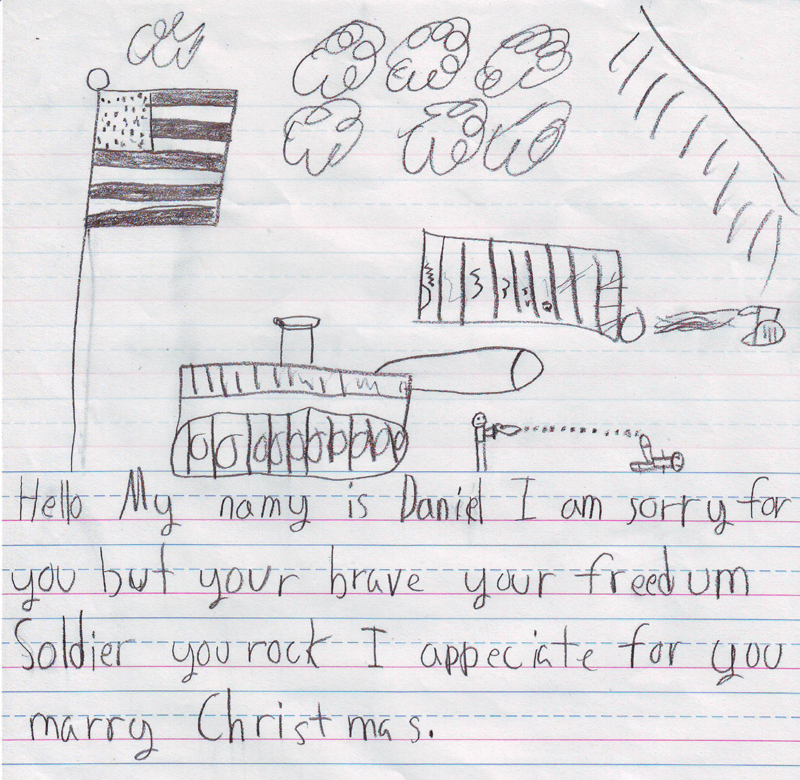 Hello My namy is Daniel I am sorry for
you but your brave your freedum
Soldier you rock I appeciate for you
marry Christmas.